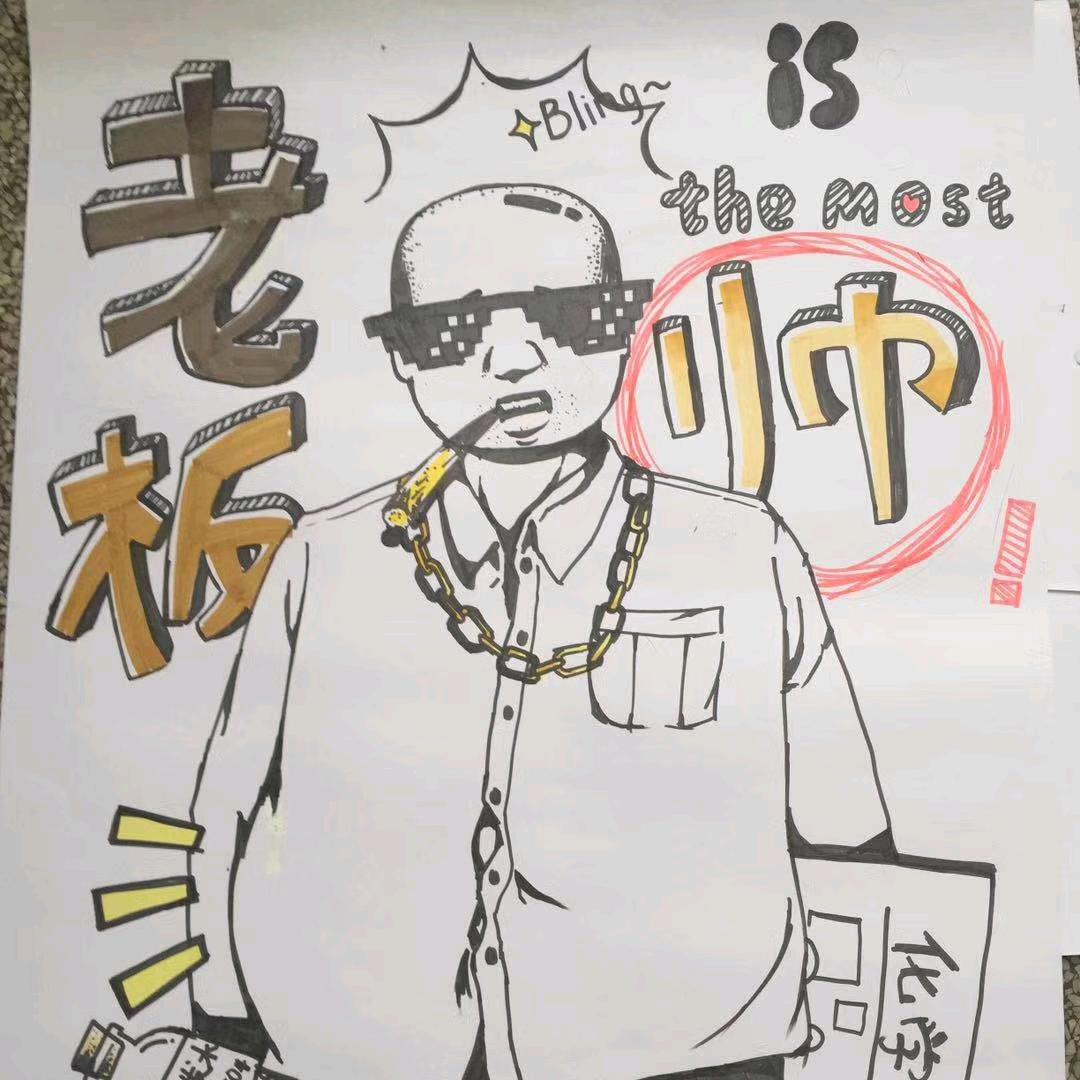 老板
Bling~
is
the most
帅!
化学